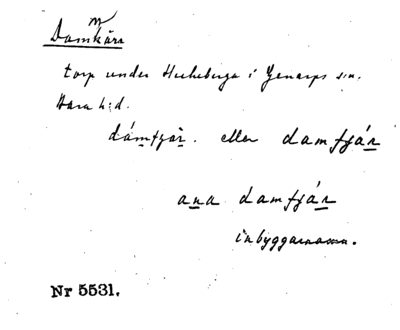 Dammkärr
torp under Heckeberga i Genarps sn.
Bara h:d.
dámfjär. eller damfjár
ana damfjár
inbyggarnamn.
Nr 5531.